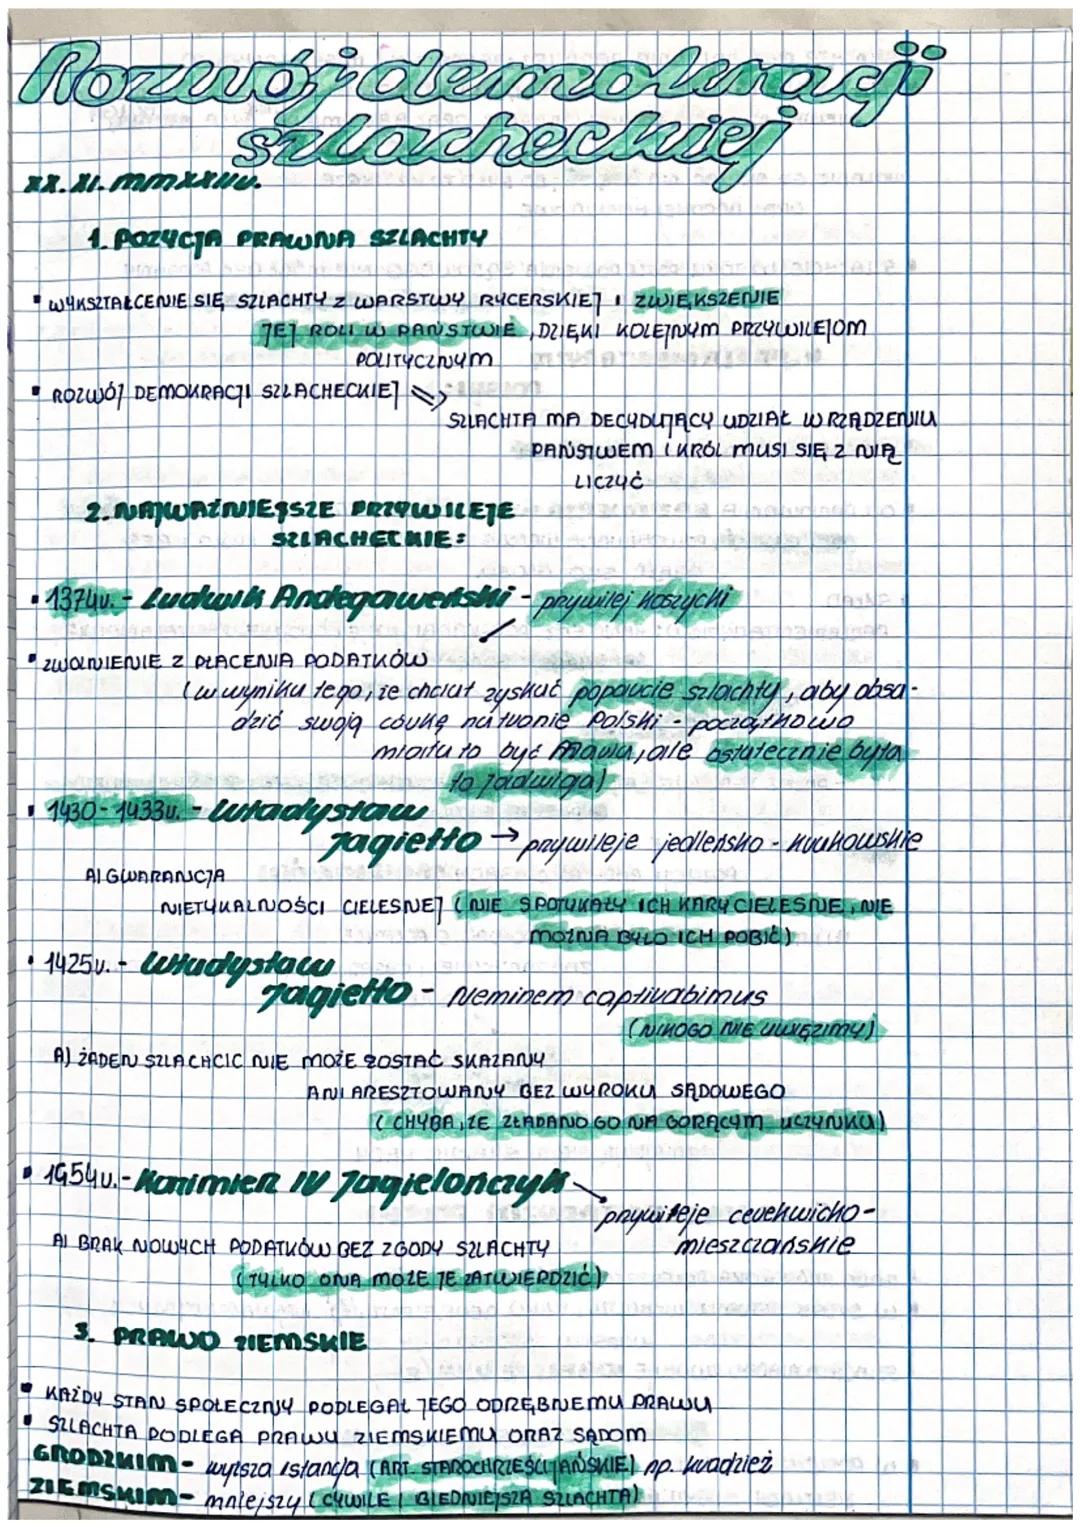 Rozwój demokracji
szlacheckiej
XX. XI. MMXXIV r.
1. POZYCJA PRAWNA SZLACHTY
▪ WYKSZTAŁCENIE SIĘ SZLACHTY Z WARSTWY RYCERSKIEJ I ZWIĘKSZENIE
JEJ ROLI W PAŃSTWIE, DZIĘKI KOLEJNYM PRZYWILEJOM
POLITYCZNYM
▪ ROZWÓJ DEMOKRACJI SZLACHECKIEJ =>
SZLACHTA MA DECYDUJĄCY UDZIAŁ W RZĄDZENIU
PAŃSTWEM I KRÓL MUSI SIĘ Z NIĄ
LICZYĆ
2. NAJWAŻNIEJSZE PRZYWILEJE
SZLACHECKIE:
▪ 1374r. - Ludwik Andegaweński - prywilej koszycki
▪ ZWOLNIENIE Z PŁACENIA PODATKÓW
(w wyniku tego, że chciał zyskać poparcie szlachty, aby obsa-
dzić swoją córkę na tronie Polski - początkowo
miała to być Maria, ale ostatecznie była
to Jadwiga)
▪ 1430-1433r. - Władysław
Jagiełło → prywileje jedleńsko - krakowskie
A) GWARANCJA
NIETYKALNOŚCI CIELESNEJ (NIE SPOTYKAŁY ICH KARY CIELESNE, NIE
MOŻNA BYŁO ICH POBIĆ)
▪ 1425r. - Władysław
Jagiełło - Neminem captivabimus
(NIKOGO NIE UWIĘZIMY)
A) ŻADEN SZLACHCIC NIE MOŻE ZOSTAĆ SKAZANY
ANI ARESZTOWANY BEZ WYROKU SĄDOWEGO
(CHYBA, ŻE ZŁAPANO GO NA GORĄCYM UCZYNKU)
▪ 1454r. - Kazimierz IV Jagielończyk
prywileje cerekwicko-
mieszczańskie
A) BRAK NOWYCH PODATKÓW BEZ ZGODY SZLACHTY
(TYLKO ONA MOŻE JE ZATWIERDZIĆ)
3. PRAWO ZIEMSKIE
▪ KAŻDY STAN SPOŁECZNY PODLEGAŁ JEGO ODRĘBNEMU PRAWU
▪ SZLACHTA PODLEGA PRAWU ZIEMSKIEMU ORAZ SĄDOM
GRODZKIM - wyższa istancja (ART. STAROCHRZEŚCIJAŃSKIE) np. kradzież
ZIEMSKIM - mniejszy (CYWILE I BIEDNIEJSZA SZLACHTA)